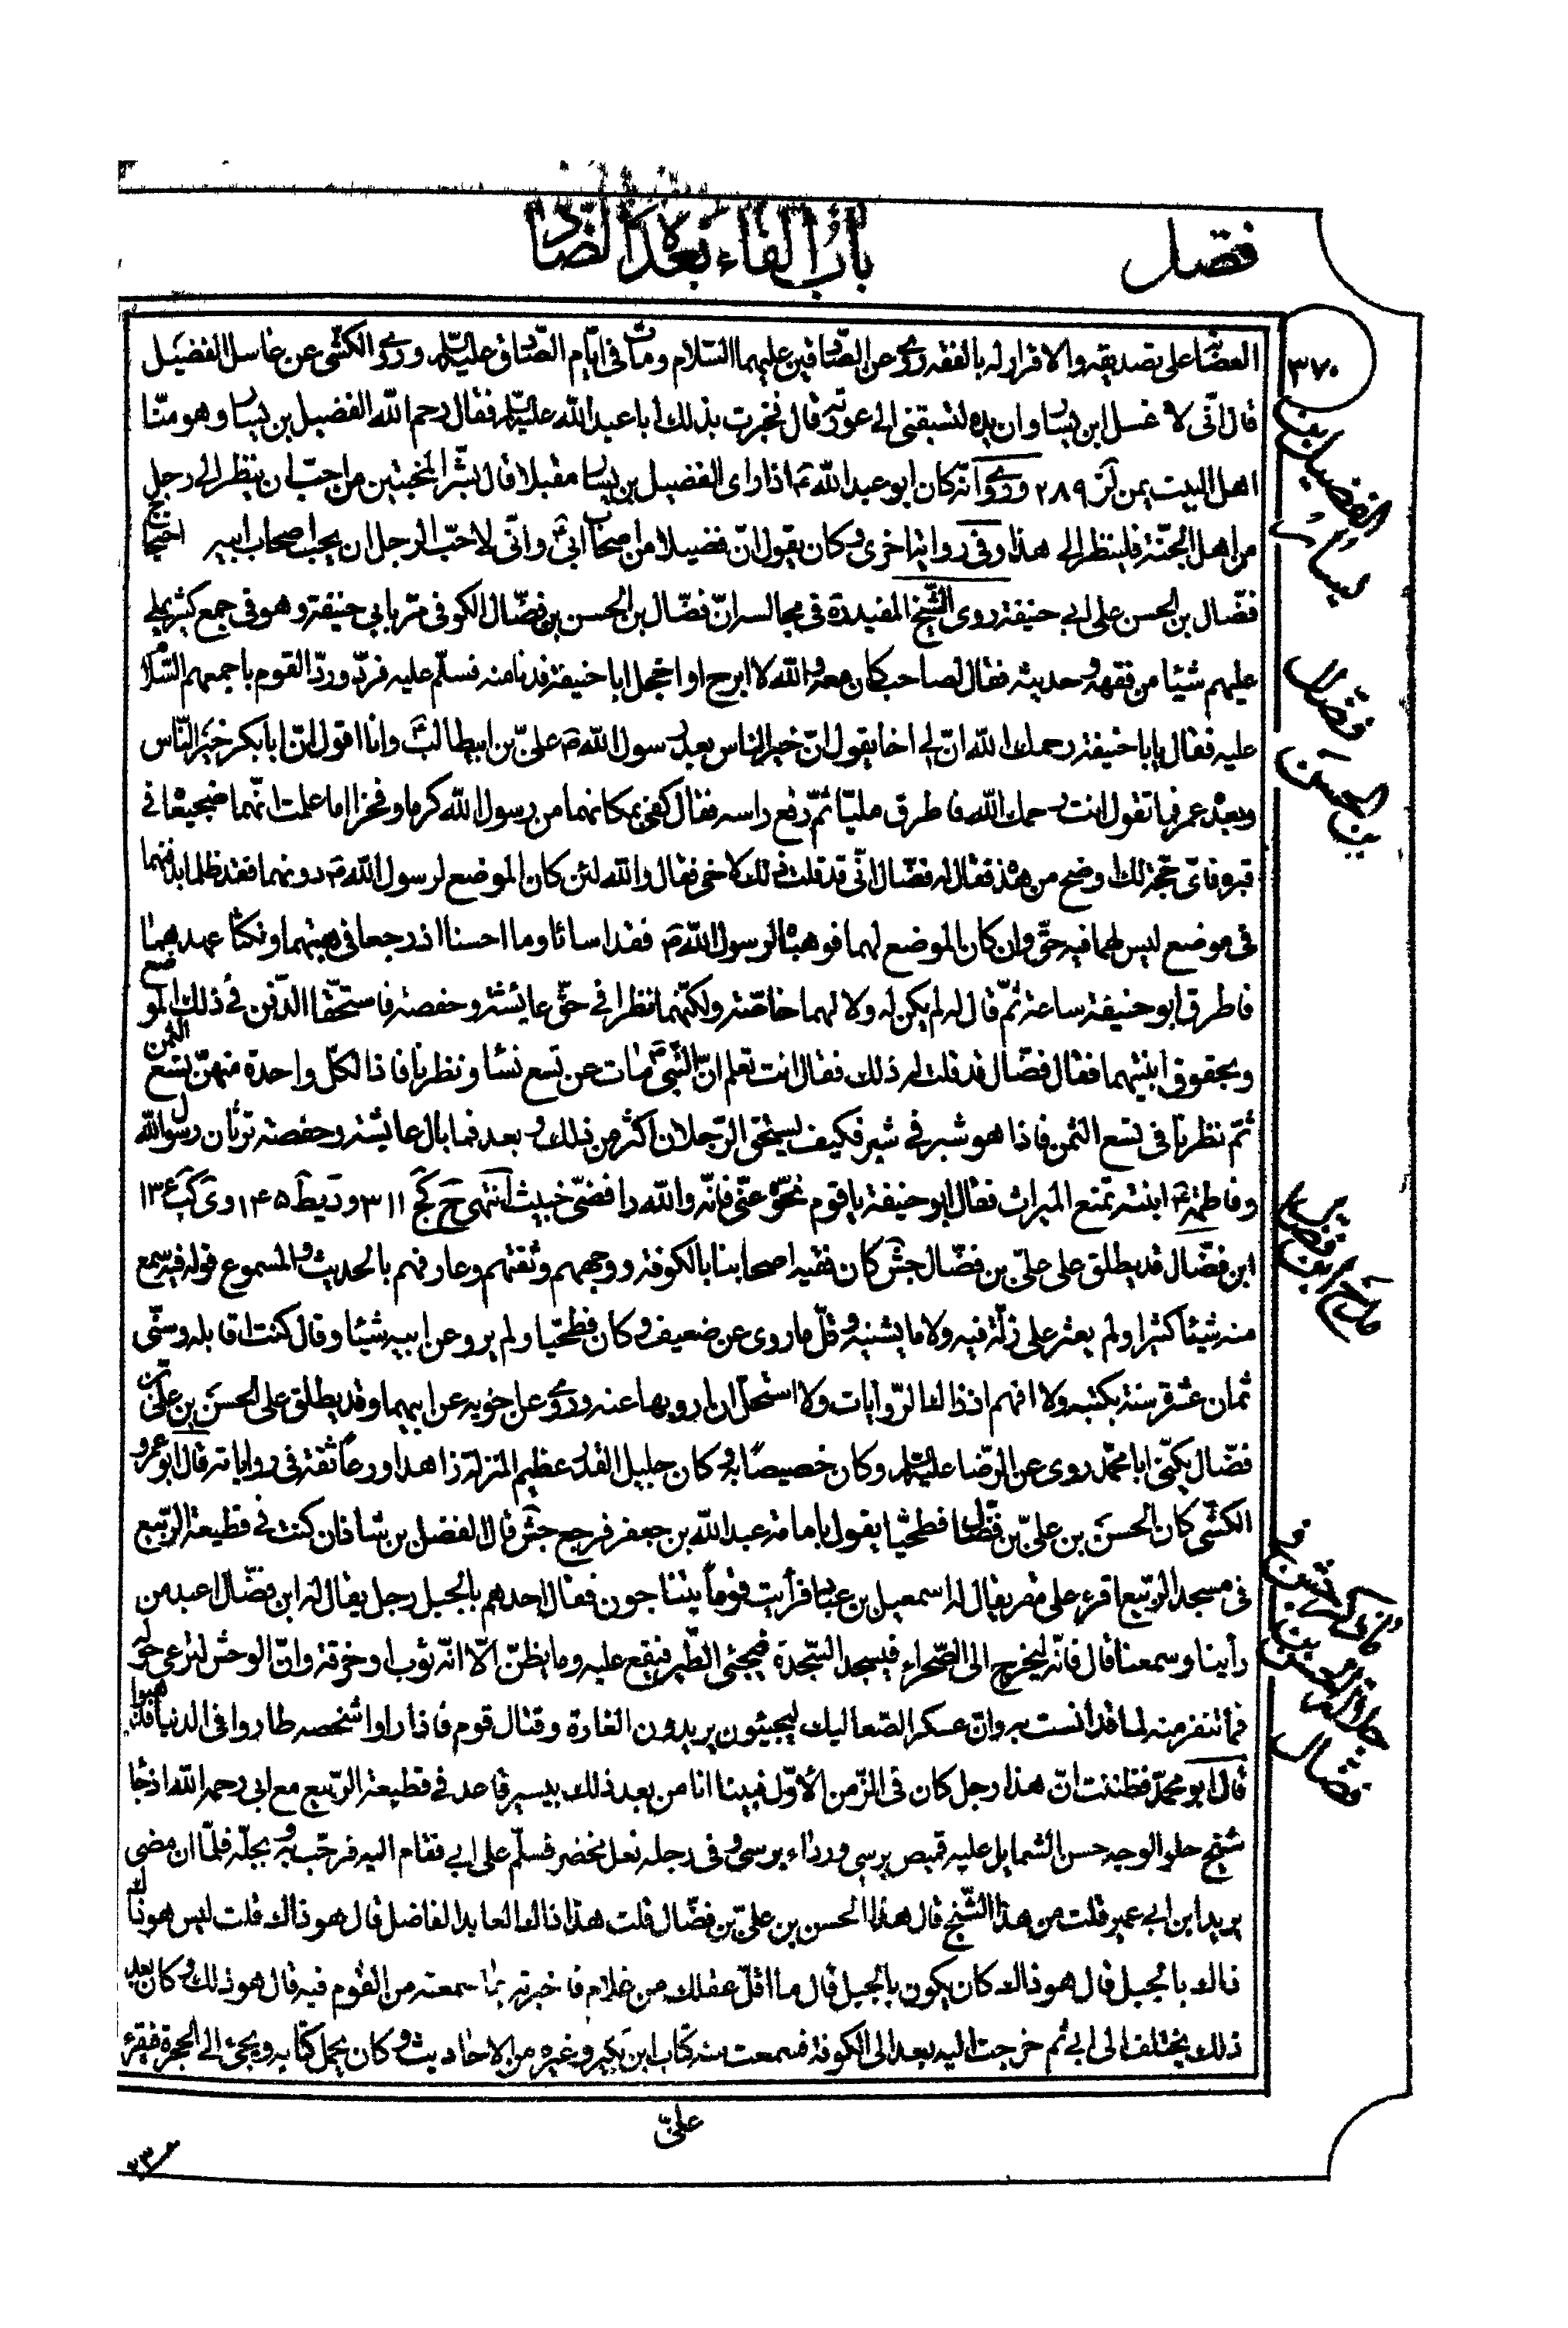 فضل
باب الفاء بعده الضاد
٣٧٠
العصابة على تصديقه والاقرار له بالفقه روى عن الصادقين عليهما السلام ومات في ايام الصادق عليه السلم وروى الكشى عن غاسل الفضيل
قال انّى لاغسل ابن يسار وان يده لتسبقنى الى عورته قال فخبرت بذلك ابا عبد الله عليه السلم فقال رحم الله الفضيل بن يسار وهو منّا
اهل البيت يمن لز ٢٨٩ وروى انّه كان ابو عبد الله ع اذا راى الفضيل بن يسار مقبلا قال بشّر المخبتين من احبّ ان ينظر الى رجل
من اهل الجنّة فلينظر الى هذا وفى رواية اخرى وكان يقول انّ فضيلا من اصحاب ابى ع وانّى لاحبّ الرجل ان يحب اصحاب ابيه
فضّال بن الحسن على ابى حنيفة روى الشيخ المفيد ره فى مجالسه انّ فضّال بن الحسن بن فضّال الكوفى مرّ بابي حنيفة وهو فى جمع كثير يملى
عليهم شيئا من فقهه وحديثه فقال لصاحب كان معه والله لا ابرح او اخجل ابا حنيفة فدنا منه فسلّم عليه فردّ وردّ القوم باجمعهم السّلام
عليه فقال يا ابا حنيفة رحمك الله انّ لى اخا يقول انّ خير الناس بعد رسول الله ص علىّ بن ابيطالب ع وانا اقول انّ ابا بكر خير النّاس
وبعده عمر فما تقول انت رحمك الله فاطرق مليّا ثمّ رفع راسه فقال كفى بمكانهما من رسول الله كرما وفخرا اما علمت انّهما ضجيعا فى
قبره فاىّ حجّة لك اوضح من هذه فقال له فضّال انّى قد قلت ذلك لاخى فقال والله لئن كان الموضع لرسول الله ص دونهما فقد ظلما بدفنهما
فى موضع ليس لهما فيه حقّ وان كان الموضع لهما فوهباه لرسول الله ص فقد اسائا وما احسنا اذ رجعا فى هبتهما ونكثا عهدهما
فاطرق ابو حنيفة ساعة ثمّ قال له لم يكن له ولا لهما خاصّة ولكنّهما نظرا فى حقّ عايشة وحفصة فاستحقّا الدّفن فى ذلك الموضع
بحقوق ابنتيهما فقال فضّال قد قلت له ذلك فقال انت تعلم انّ النّبىّ ص مات عن تسع نساء ونظرنا فاذا لكلّ واحدة منهنّ تسع الثمن
ثمّ نظرنا فى تسع الثمن فاذا هو شبر فى شبر فكيف يستحقّ الرّجلان اكثر من ذلك وبعد فما بال عايشة وحفصة ترثان رسول الله
وفاطمة ع ابنته تمنع الميراث فقال ابو حنيفة يا قوم نحّوه عنّى فانّه والله رافضىّ خبيث انتهى ح كج ٣١١ و د يط ١٤٥ وى كب ١٣٤
ابن فضّال قد يطلق على علىّ بن فضّال جش كان فقيه اصحابنا بالكوفة ووجههم وثقتهم وعارفهم بالحديث والمسموع قوله فيه سمع
منه شيئا كثيرا ولم يعثر على زلّة فيه ولا ما يشينه وقلّ ما روى عن ضعيف وكان فطحيّا ولم يرو عن ابيه شيئا وقال كنت اقابله وسنّى
ثمان عشرة سنة بكتبه ولا افهم اذ ذاك الرّوايات ولا استحلّ ان ارويها عنه وروى عن اخويه عن ابيهما وقد يطلق على الحسن بن علىّ بن
فضّال يكنّى ابا محمّد روى عن الرّضا عليه السلم وكان خصيصا به وكان جليل القدر عظيم المنزلة زاهدا ورعا ثقة فى رواياته قال ابو عمرو
الكشّى كان الحسن بن علىّ بن فضّال فطحيّا يقول بامامة عبد الله بن جعفر فرجع جش قال الفضل بن شاذان كنت فى قطيعة الرّبيع
فى مسجد الرّبيع اقرء على مقرء يقال له اسمعيل بن عباد فرأيت قوما يتناجون فقال احدهم بالجبل رجل يقال له ابن فضّال اعبد من
رأينا وسمعنا قال فانّه ليخرج الى الصّحراء فيسجد السّجدة فيجئ الطّير فيقع عليه وما يظنّ الّا انّه ثوب او خرقة وانّ الوحش لترعى حوله
فما تنفر منه لما قد انست به وانّ عسكر الصّعاليك ليجيئون يريدون الغارة وقتال قوم فاذا راوا شخصه طاروا فى الدنيا فذهبوا
قال ابو محمّد فظننت انّ هذا رجل كان فى الزّمن الاوّل فبينا انا من بعد ذلك بيسير قاعد فى قطيعة الرّبيع مع ابى رحمه الله اذ جاء
شيخ حلو الوجه حسن الشمايل عليه قميص نرسى ورداء نرسى وفى رجله نعل مخضر فسلّم على ابى فقام اليه فرحّب به وبجّله فلمّا ان مضى
يريد ابن ابى عمير قلت من هذا الشّيخ قال هذا الحسن بن علىّ بن فضّال قلت هذا ذاك العابد الفاضل قال هو ذاك قلت ليس هو ذاك
ذاك بالجبل قال هو ذاك كان يكون بالجبل قال ما اقلّ عقلك من غلام فاخبرته بما سمعته من القوم فيه قال هو ذلك وكان بعد
ذلك يختلف الى ابى ثم خرجت اليه بعد الى الكوفة فسمعت منه كتاب ابن بكير وغيره من الاحاديث وكان يحمل كتابه ويجئ الى الحجرة فيقرئه
علىّ
الفضيل بن
يسار
فضال
بن الحسن
مدح ابن فضال
جلالة الحسن بن
فضال